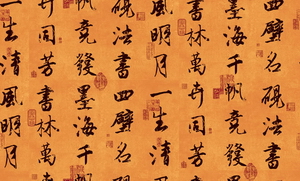 四壁名硯法書
墨海千帆竟發
書林萬卉同芳
風明月一生清
硯法書四壁名
帆竟發墨海千
卉同芳書林萬
一生清風明月